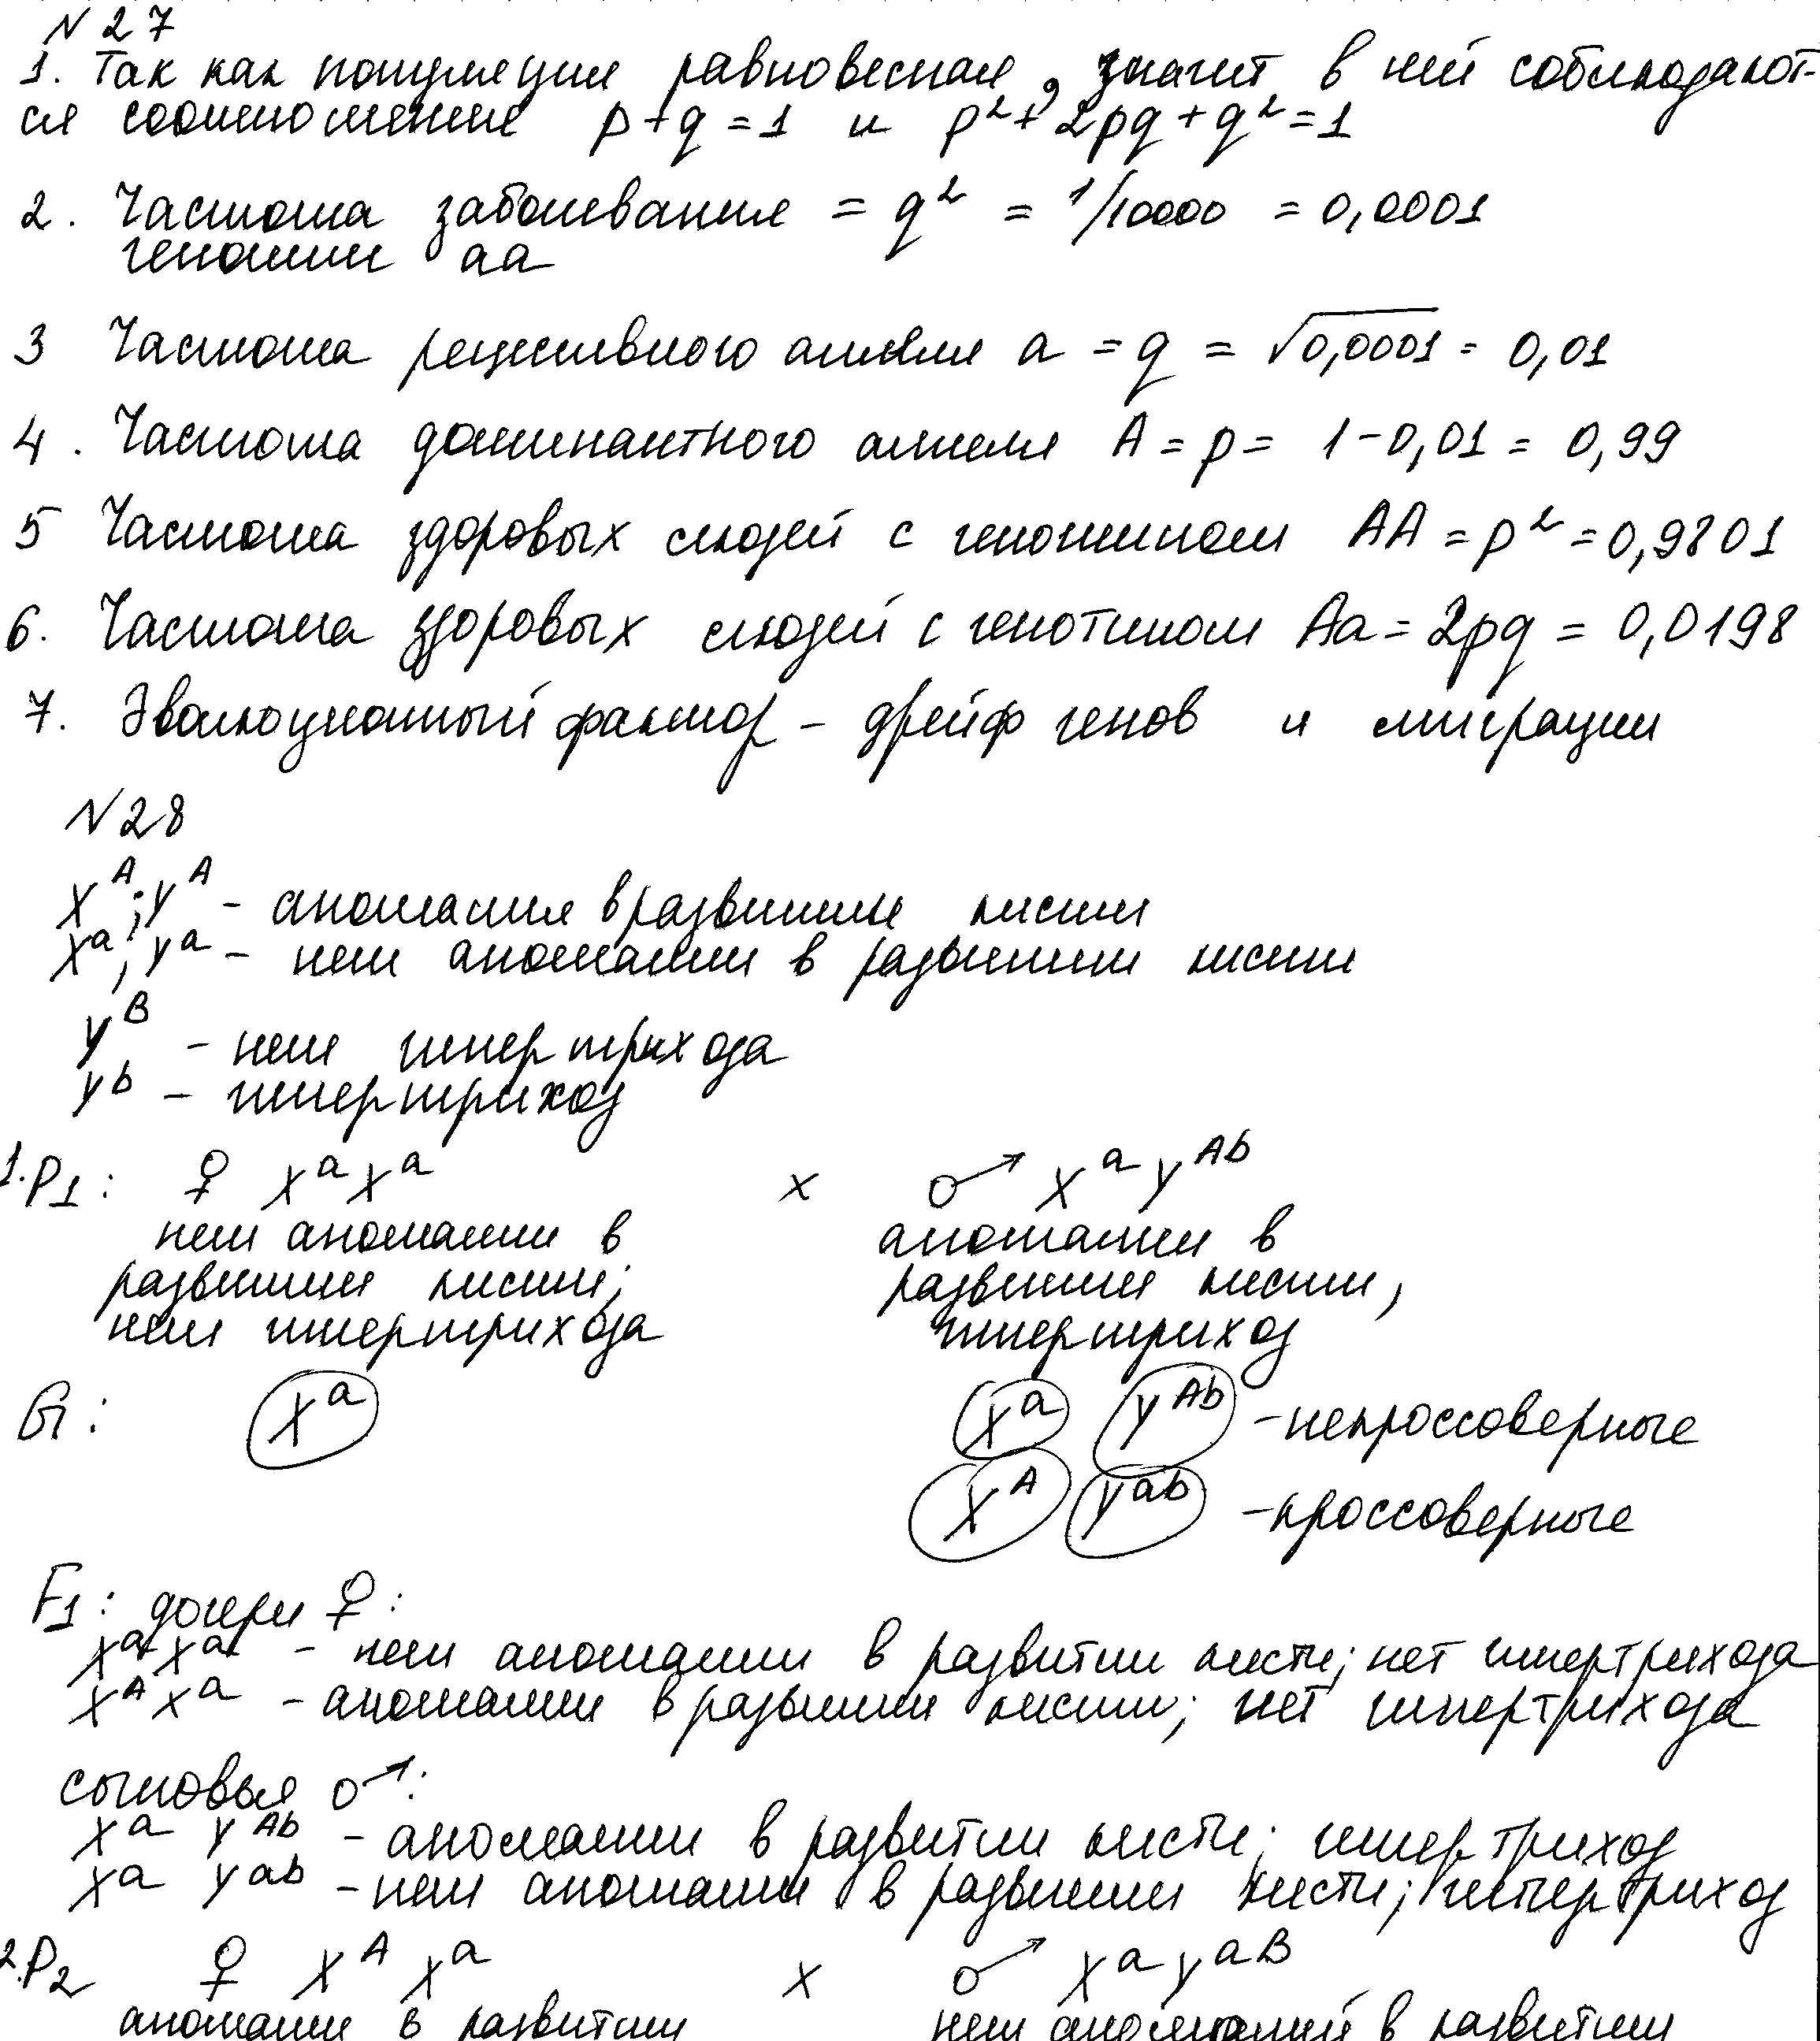 N 27
1. Так как популяция равновесная, значит в ней соблюдают-
ся соотношение p + q = 1 и p² + 2pq + q² = 1
2. Частота заболевания = q² = 1/10000 = 0,0001
генотип аа
3 Частота рецессивного аллеля a = q = √0,0001 = 0,01
4. Частота доминантного аллеля A = p = 1 - 0,01 = 0,99
5 Частота здоровых людей с генотипом AA = p² = 0,9801
6. Частота здоровых людей с генотипом Aa = 2pq = 0,0198
7. Эволюционный фактор - дрейф генов и миграции
N 28
Xᴬ; Yᴬ - аномалия в развитии кисти
Xᵃ; Yᵃ - нет аномалии в развитии кисти
Yᴮ - нет гипертрихоза
Yᵇ - гипертрихоз
1. P₁: ♀ XᵃXᵃ x ♂ XᵃYᴬᵇ
нет аномалии в аномалии в
развитии кисти; развитии кисти,
нет гипертрихоза гипертрихоз
G: Xᵃ Xᵃ Yᴬᵇ - некроссоверные
Xᴬ Yᵃᵇ - кроссоверные
F₁: дочери ♀:
XᵃXᵃ - нет аномалии в развитии кисти; нет гипертрихоза
XᴬXᵃ - аномалии в развитии кисти; нет гипертрихоза
сыновья ♂:
Xᵃ Yᴬᵇ - аномалии в развитии кисти; гипертрихоз
Xᵃ Yᵃᵇ - нет аномалии в развитии кисти; гипертрихоз
2. P₂ ♀ Xᴬ Xᵃ x ♂ XᵃYᵃᴮ
аномалии в развитии нет аномалий в развитии